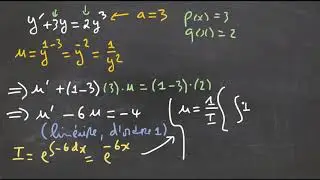 y' + 3y = 2y³ ← a=3
p(x) = 3
q(x) = 2
u = y¹⁻³ = y⁻² = 1/y²
⇒ u' + (1-3)(3)·u = (1-3)·(2)
⇒ u' - 6u = -4
(linéaire, d'ordre 1)
I = e^∫-6dx = e^-6x
u = 1/I ( ∫ I